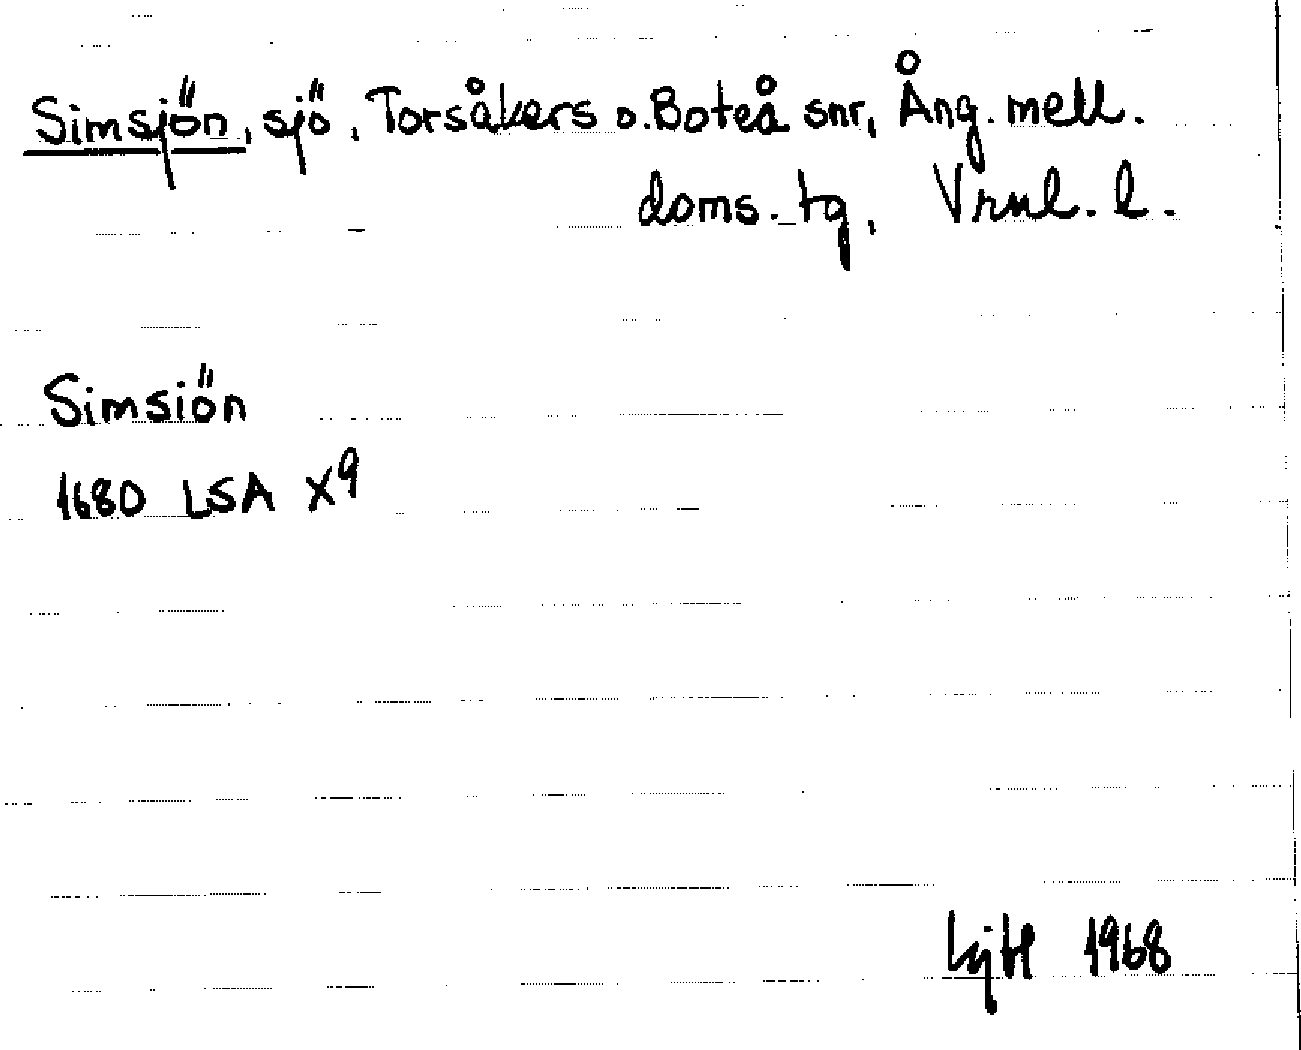 Simsjön, sjö, Torsåkers o. Boteå snr, Ång. mell.
doms. tg, Vrnl. l.
Simsiön
1680 LSA X9
1968